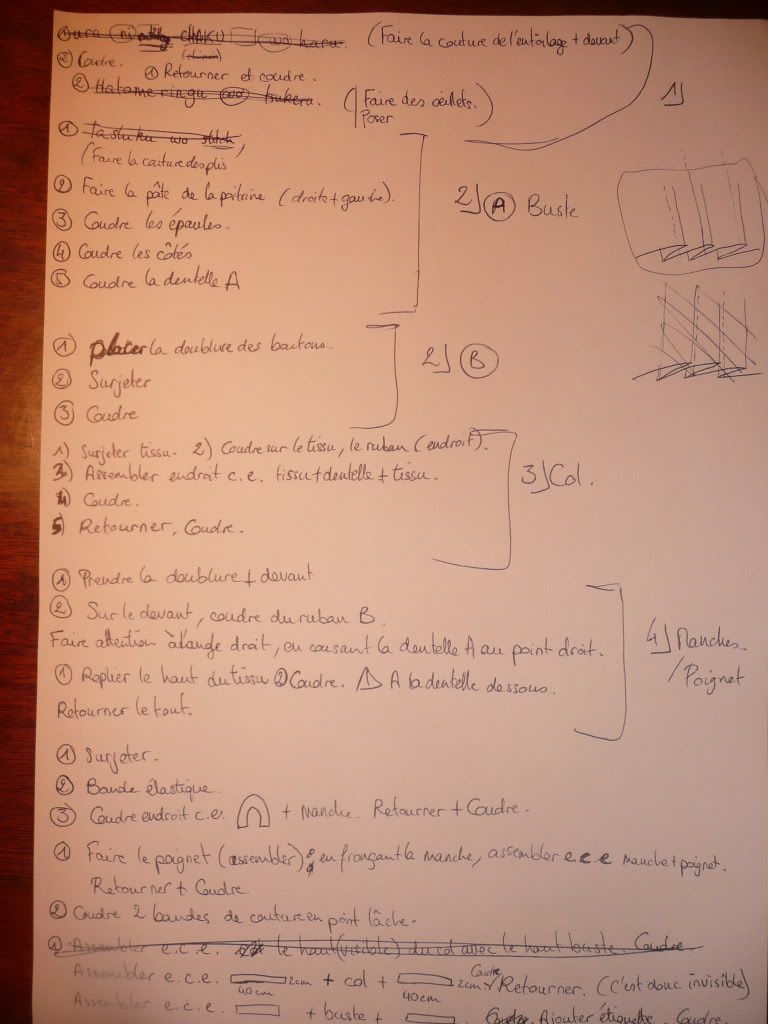 ura (ni) CHAKU wo haru. (Faire la couture de l'entoilage + devant)
② Coudre.
① Retourner et coudre.
② Hatome ringu wo tsukeru. (Faire des œillets.
Poser)
1)
① Tashuku wo stitch,
(Faire la couture des plis
② Faire la pâte de la poitrine (droite + gauche).
③ Coudre les épaules.
④ Coudre les côtés
⑤ Coudre la dentelle A
2) Ⓐ Buste
① placer la doublure des boutons.
② Surjeter
③ Coudre
2) Ⓑ
1) Surjeter tissu. 2) Coudre sur le tissu, le ruban (endroit).
3) Assembler endroit c.e. tissu + dentelle + tissu.
4) Coudre.
5) Retourner, Coudre.
3) Col.
① Prendre la doublure + devant
② Sur le devant, coudre du ruban B.
Faire attention à l'angle droit, en cousant la dentelle A au point droit.
① Replier le haut du tissu ② Coudre. ⚠ A la dentelle dessous.
Retourner le tout.
4) Manches.
/Poignet
① Surjeter.
② Bande élastique
③ Coudre endroit c.e. + Manche. Retourner + Coudre.
① Faire le poignet (assembler) ; en fronçant la manche, assembler e.c.e manche + poignet.
Retourner + Coudre.
② Coudre 2 bandes de couture en point lâche.
① Assembler e.c.e. le haut (visible) du col avec le haut buste. Coudre.
Assembler e.c.e. 40cm 2cm + col + 40cm 2cm Coudre Retourner. (C'est donc invisible)
Assembler e.c.e. + buste + Ajouter étiquette. Coudre.